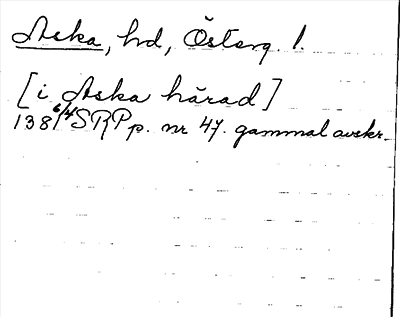 Aska, hd, Österg. l.
[i Aska härad]
1381 6/4 SRPp. nr 47. gammal avskr.